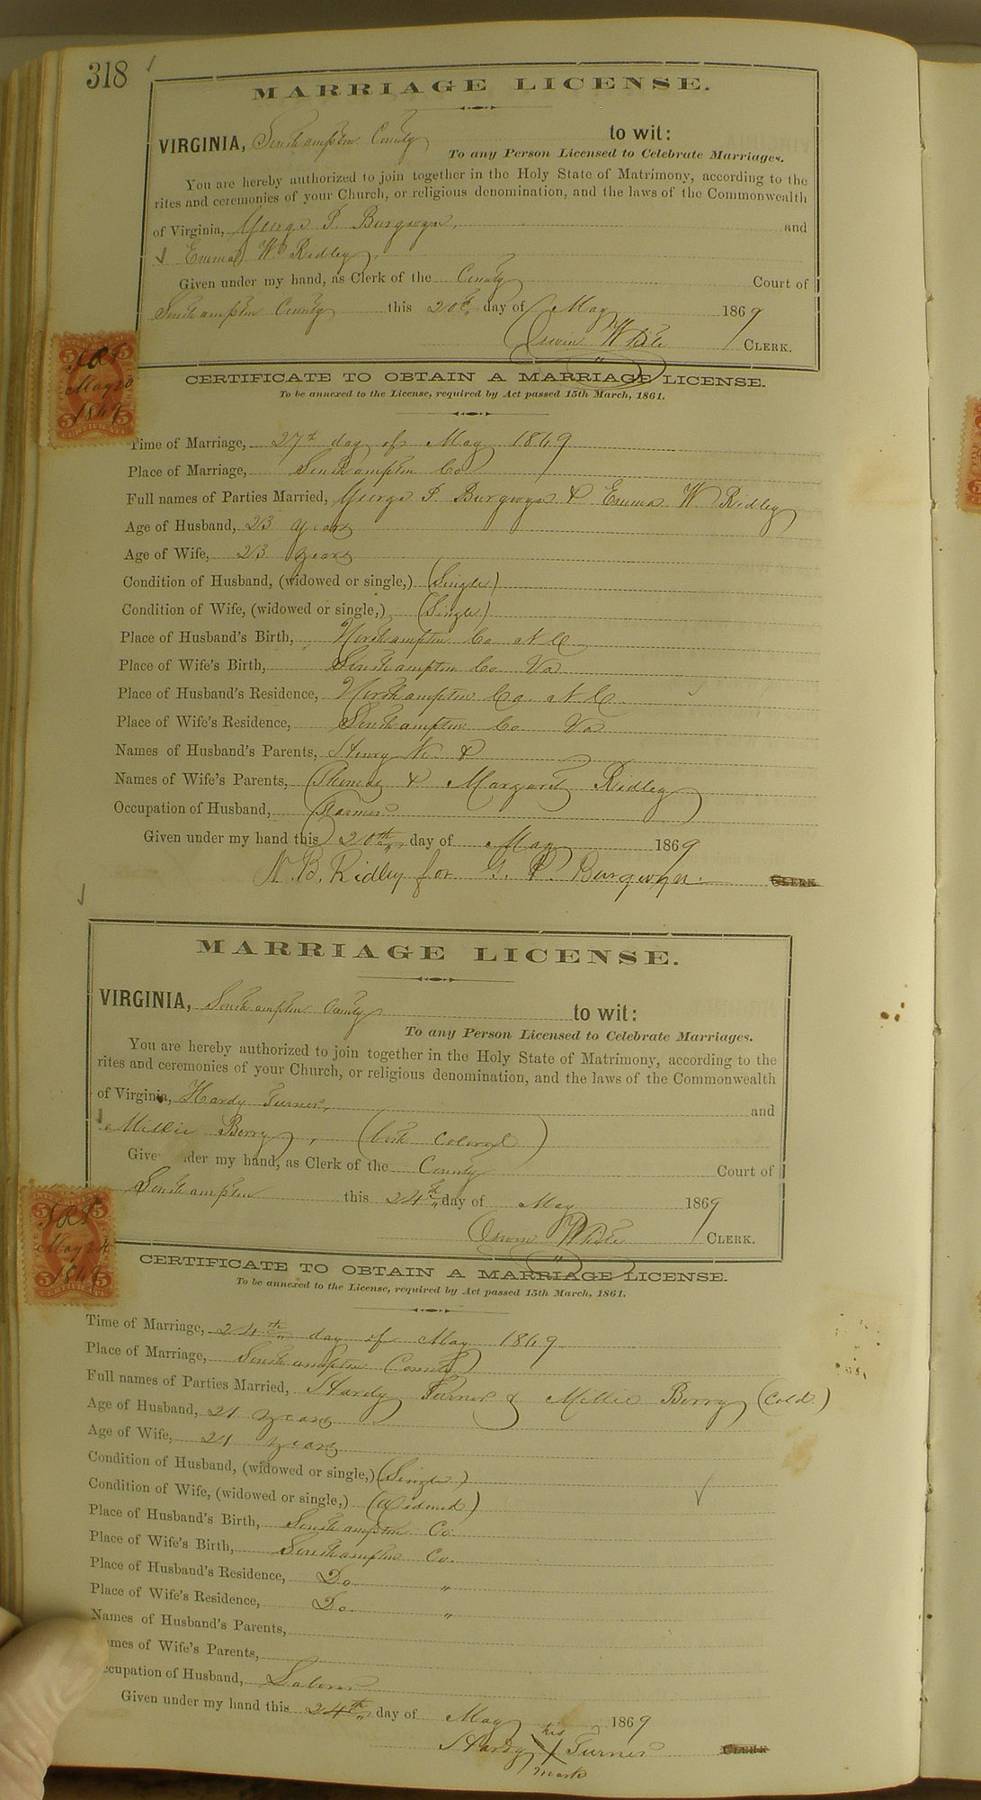 318
MARRIAGE LICENSE.
VIRGINIA, Southampton County to wit:
To any Person Licensed to Celebrate Marriages.
You are hereby authorized to join together in the Holy State of Matrimony, according to the
rites and ceremonies of your Church, or religious denomination, and the laws of the Commonwealth
of Virginia, George P. Burgwyn, and
Emma W Ridley
Given under my hand, as Clerk of the County Court of
Southampton County this 20th day of May 1869
White CLERK.
CERTIFICATE TO OBTAIN A MARRIAGE LICENSE.
To be annexed to the License, required by Act passed 15th March, 1861.
May 20
1869
Time of Marriage, 27th day of May 1869
Place of Marriage, Southampton Co
Full names of Parties Married, George P. Burgwyn & Emma W. Ridley
Age of Husband, 23 years
Age of Wife, 23 years
Condition of Husband, (widowed or single,) (Single)
Condition of Wife, (widowed or single,) (Single)
Place of Husband's Birth, Northampton Co N C
Place of Wife's Birth, Southampton Co Va
Place of Husband's Residence, Northampton Co. N C
Place of Wife's Residence, Southampton Co Va
Names of Husband's Parents, Henry &
Names of Wife's Parents, & Margaret Ridley
Occupation of Husband, Farmer
Given under my hand this 20th day of May 1869
N. B. Ridley for G. P. Burgwyn. CLERK
MARRIAGE LICENSE.
VIRGINIA, Southampton County to wit:
To any Person Licensed to Celebrate Marriages.
You are hereby authorized to join together in the Holy State of Matrimony, according to the
rites and ceremonies of your Church, or religious denomination, and the laws of the Commonwealth
of Virginia, Hardy Turner, and
Millie Berry, (both colored)
Given under my hand, as Clerk of the County Court of
Southampton this 24th day of May 1869
White CLERK.
CERTIFICATE TO OBTAIN A MARRIAGE LICENSE.
To be annexed to the License, required by Act passed 15th March, 1861.
May 24
1869
Time of Marriage, 24th day of May 1869
Place of Marriage, Southampton County
Full names of Parties Married, Hardy Turner & Millie Berry (Cold)
Age of Husband, 21 years
Age of Wife, 21 years
Condition of Husband, (widowed or single,) (Single)
Condition of Wife, (widowed or single,) (Widowed)
Place of Husband's Birth, Southampton Co.
Place of Wife's Birth, Southampton Co.
Place of Husband's Residence, Do. "
Place of Wife's Residence, Do. "
Names of Husband's Parents,
Names of Wife's Parents,
Occupation of Husband, Laborer
Given under my hand this 24th day of May 1869
Hardy his X mark Turner CLERK